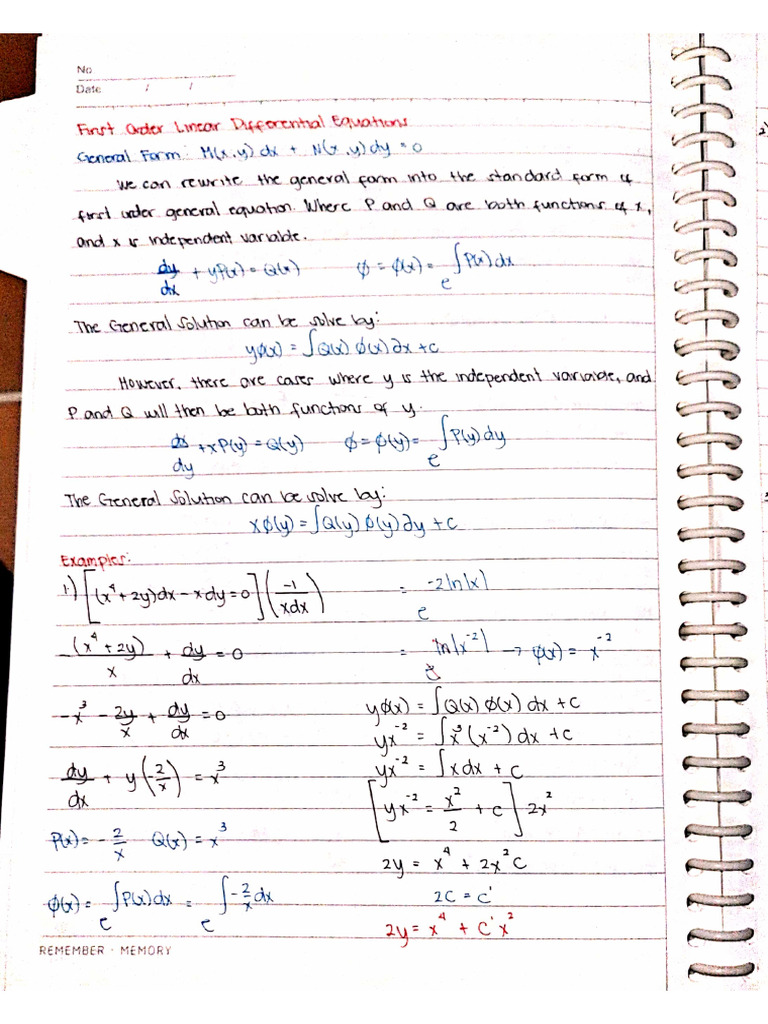 No.
Date / /
First Order Linear Differential Equations
General Form: M(x,y)dx + N(x,y)dy = 0
We can rewrite the general form into the standard form of
first order general equation. Where P and Q are both functions of x,
and x is independent variable.
dy/dx + yP(x) = Q(x)    ϕ = ϕ(x) = e^∫P(x)dx
The General Solution can be solve by:
yϕ(x) = ∫Q(x) ϕ(x) ∂x + c
However, there are cases where y is the independent variable, and
P and Q will then be both functions of y.
dx/dy + xP(y) = Q(y)    ϕ = ϕ(y) = e^∫P(y)dy
The General Solution can be solve by:
xϕ(y) = ∫Q(y) ϕ(y) ∂y + c
Examples:
1.) [(x⁴ + 2y)dx − xdy = 0] (−1/xdx)
−(x⁴ + 2y)/x + dy/dx = 0
−x³ − 2y/x + dy/dx = 0
dy/dx + y(−2/x) = x³
P(x) = −2/x    Q(x) = x³
ϕ(x) = e^∫P(x)dx = e^∫−2/x dx
= e^−2ln|x|
= e^ln|x⁻²| → φ(x) = x⁻²
yϕ(x) = ∫Q(x) ϕ(x) dx + c
yx⁻² = ∫x³(x⁻²) dx + c
yx⁻² = ∫xdx + c
[yx⁻² = x²/2 + c] 2x²
2y = x⁴ + 2x²c
2c = c'
2y = x⁴ + c'x²
REMEMBER - MEMORY
2)